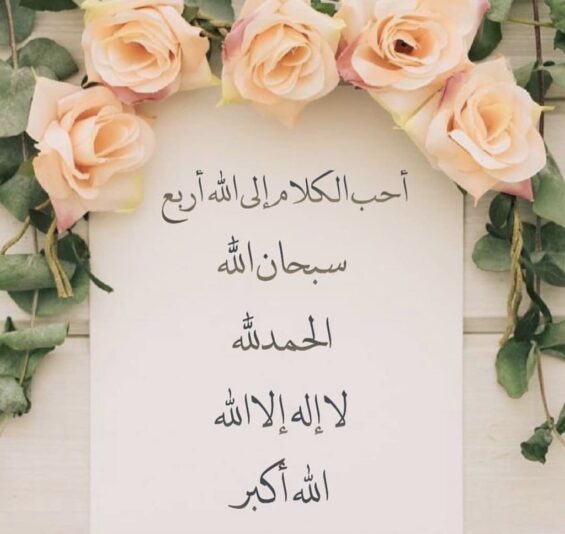 أحب الكلام إلى الله أربع
سبحان الله
الحمد لله
لا إله إلا الله
الله أكبر